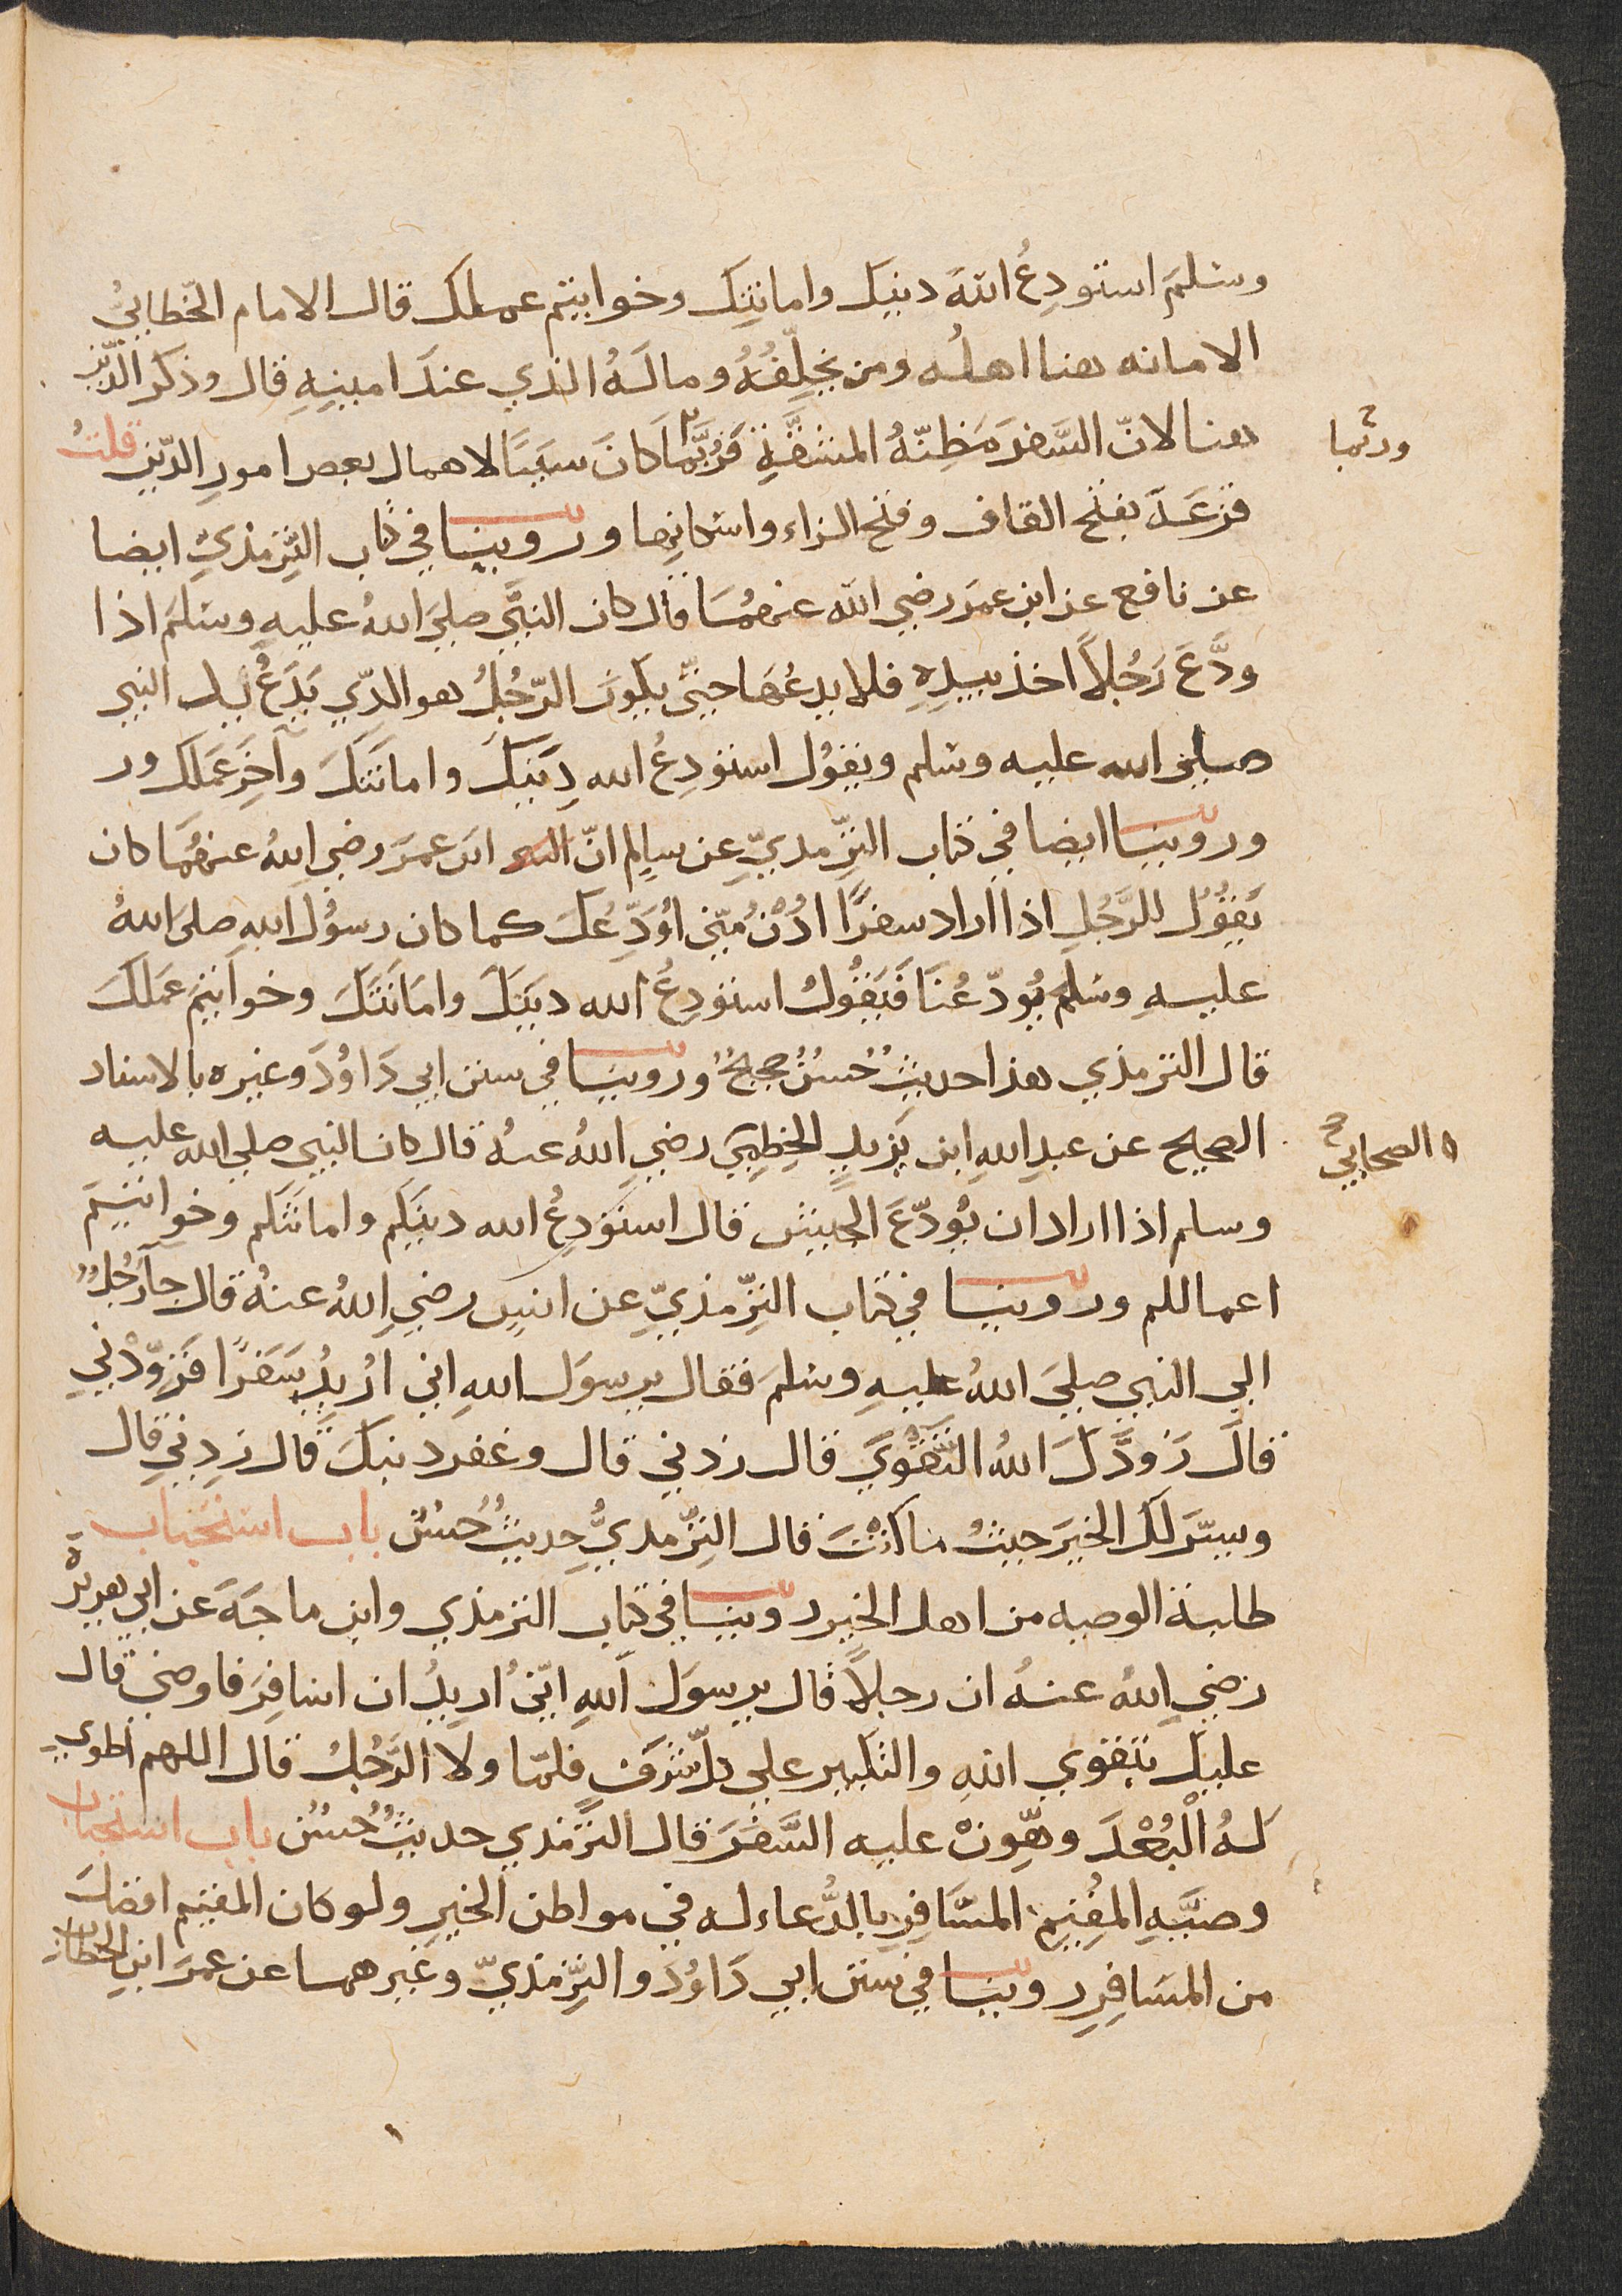 وسلمَ استودِعُ اللهَ دينَك وامانتِك وخواتيم عملك قال الامام الخطابيُّ
الامانه هنا اهلُه ومن يخلِّفُهُ ومالَهُ الذي عندَ امينِهِ قال وذكرَ الدِّين
هنا لانّ السَّفر مَظِنّةُ المشقَّةِ فرُبَّما كانَ سببًا لاهمال بعض امورِ الدّين قلتُ
وربّما
قزعَة بفتح القاف وفتح الزاء واسكانِها وروينا في كتاب التِّرمذيِّ ايضا
عن نافع عن ابن عمرَ رضي الله عنهمَا قال كان النبيُّ صليَ اللهُ عليهِ وسَلمَ اذا
ودَّعَ رَجُلاً اخذ بيدِهِ فلا يدعُهَا حتّى يكونَ الرّجُلُ هو الذّي يَدَعُ يد النبي
صلي الله عليه وسلم ويقوُل استودِعُ الله دِينَكَ وامانَتَكَ وآخِرَ عَمَلكَ ور
وروينا ايضا في كتاب التِّرمذيِّ عن سالِم انّ ابن عمرَ رضي اللهُ عنهُمَا كان
يَقوُلُ للرَّجُلِ اذا اراد سفرًا ادْنُ مِنّي اوَدِّعْكَ كما كان رسوُل اللهِ صلى اللهُ
عليهِ وسلم يُودّعُنَا فَيَقُولُ استودِعُ الله دينَكَ وامَانَتَكَ وخواتيمَ عَمَلكَ
قال الترمذي هذا حديثُ حُسنُ صحيحُ وروينا في سنن ابي دَاوُدَ وغيره بالاسناد
الصحيح عن عبدِ اللهِ ابن يَزيدٍ الخِطِميّ رضي اللهُ عنهُ قال كان النبي صلي الله عليه
الصحابي
وسلم اذا اراد ان يُودّعَ الجيش قال استَودِعُ الله دينَكم وامانَتَكم وخواتيمَ
اعمالكم وروينا في كتاب التِّرمذيّ عن انسٍ رضي اللهُ عنهُ قال جآ رَجُلٌ
الي النبي صليَ اللهُ عليهِ وسلمَ فقال يرسوَل اللهِ اني ارُيدُ سَفَرًا فَزوّدْني
قالَ زَودَّكَ اللهُ التقوَي قال زدني قال وغفر ذنبَكَ قال زِدِني قال
ويسّرَ لكَ الخيرَ حيثُ ماكنْتَ قال التِّرمذيُّ حديثُ حُسُن باب استحباب
طلبة الوصيه من اهل الخير روينا في كتاب الترمذي وابن ماجَةَ عن ابي هريرة
رضي اللهُ عنهُ ان رجلاً قال يرسوَل اللهِ انّيُ اريدُ ان اسافِرَ فاوصني قال
عليكَ بتقوي اللهِ والتكبيرِ علي كلّ شَرَفٍ فلمّا ولا الرَّجُلُ قال اللهم اطوي
لهُ الْبُعْدَ وهّوِنْ عليه السَّفَرَ قال الترّمذي حديثُ حُسُن باب استحباب
وصيّةِ المُقيم المسَافِرِ بالدُّعاء له في مواطن الخيرِ ولو كان المقيم افضلَ
من المسَافِرِ روينا في سنن ابي دَاوُدَ والتِّرمذيّ وغيرهما عن عمرَ ابن الخطاب